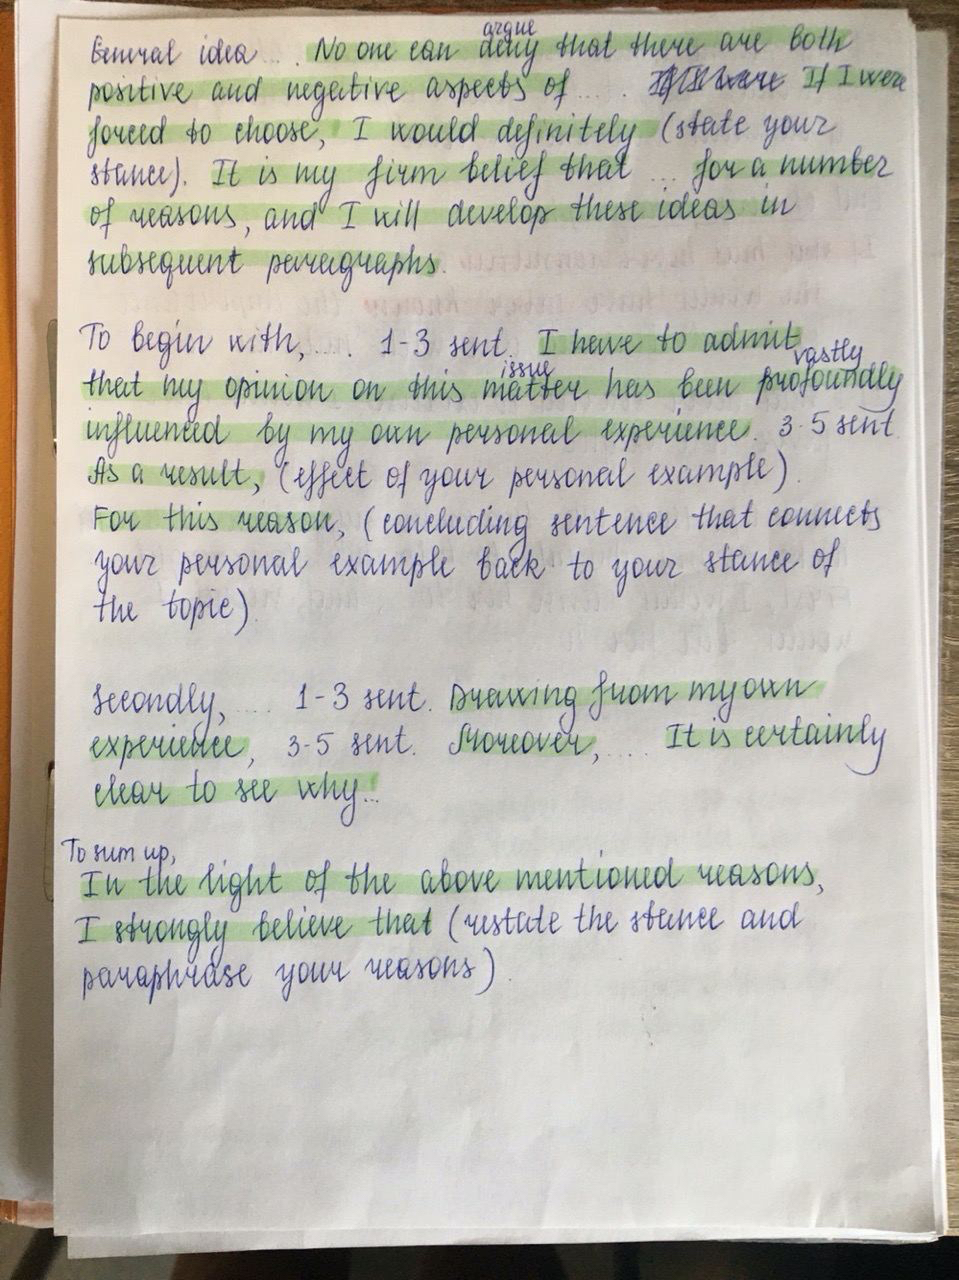 General idea .... No one can deny that there are both
argue
positive and negative aspects of ..... If I were If I were
forced to choose, I would definitely (state your
stance). It is my firm belief that ... for a number
of reasons, and I will develop these ideas in
subsequent paragraphs.
To begin with, .... 1-3 sent. I have to admit
that my opinion on this matter has been profoundly
issue
vastly
influenced by my own personal experience. 3-5 sent.
As a result, (effect of your personal example)
For this reason, (concluding sentence that connects
your personal example back to your stance of
the topic)
Secondly, .... 1-3 sent. Drawing from my own
experience, 3-5 sent. Moreover, .... It is certainly
clear to see why...
To sum up,
In the light of the above mentioned reasons,
I strongly believe that (restate the stance and
paraphrase your reasons)